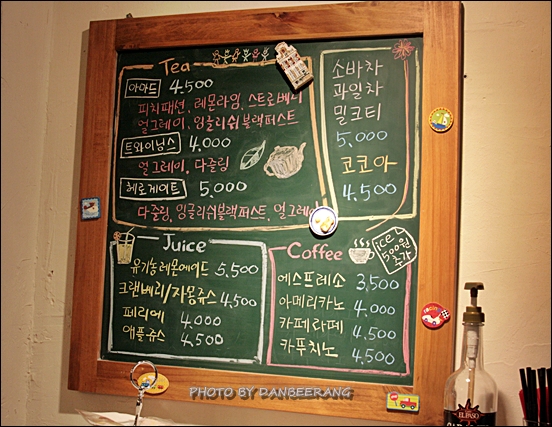 Tea
아마드 4.500
피치패션, 레몬라임, 스트로베리
얼그레이, 잉글리쉬블랙퍼스트
트와이닝스 4,000
얼그레이, 다즐링
헤로게이트 5,000
다즐링, 잉글리쉬블랙퍼스트, 얼그레이
소바차
과일차
밀크티
5,000
코코아
4,500
Juice
유기농레몬에이드 5,500
크랜베리/자몽쥬스 4,500
페리에 4,000
애플쥬스 4,500
Coffee
ice
500원
추가
에스프레소 3,500
아메리카노 4,000
카페라떼 4,500
카푸치노 4,500
PHOTO BY DANBEERANG
EL PASO